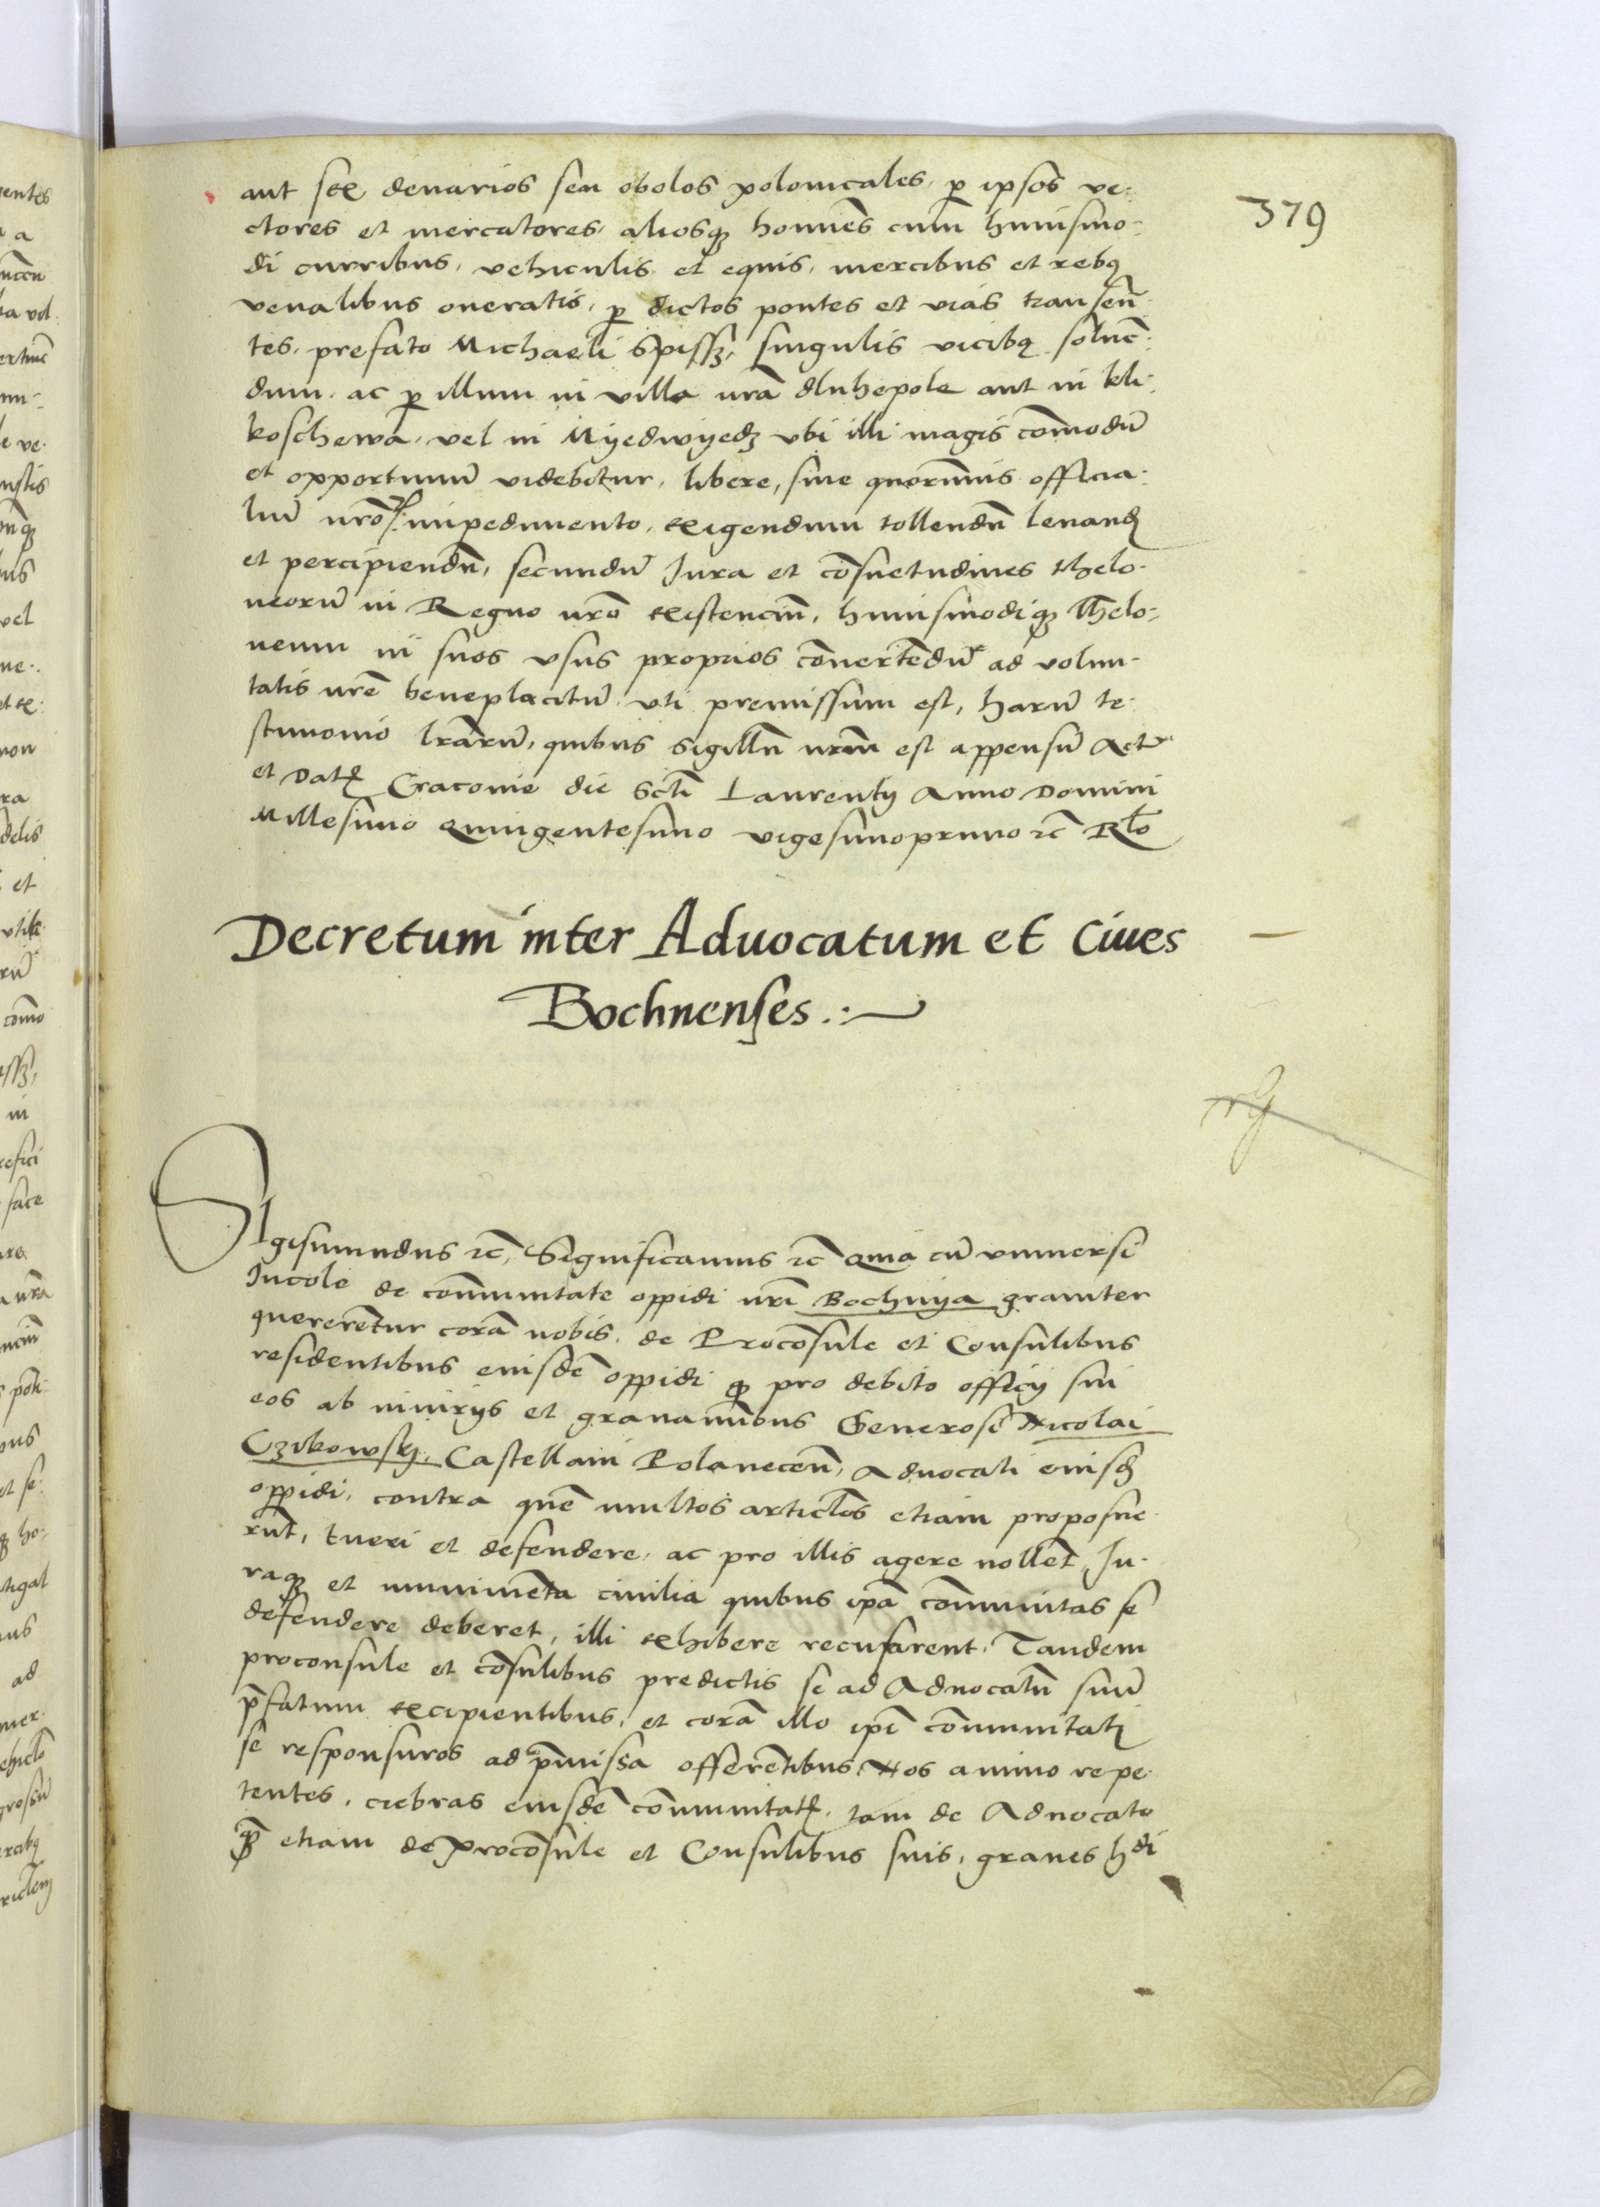 379
aut sex denarios seu obolos polonicales, p ipsos ve-
ctores et mercatores, aliosq homines cum huiusmo-
di curribus, vehiculis et equis, mercibus et rebq
venalibus oneratis, p dictos pontes et vias transeun-
tes, prefato Michaeli Spissz, singulis vicibq soluen-
dum, ac p illum in villa nra dluhepole aut in kli-
koschewa, vel in Myedwyedz vbi illi magis comodū
et opportunū videbitur, libere, sine quorumuis officia-
liū nror impedimento, exigendum tollendū leuand
et percipiendū, secundū Jura et cosuetudines thelo-
neorū in Regno nro existenciū, huiusmodiq Thelo-
neum in suos vsus proprios couertedū ad volun-
tatis nre beneplacitū, vti premissum est, harū te-
stimonio lrarū, quibus sigillū nrm est appensū Act
et Dat Cracouie die Scti Laurentij Anno Domini
Millesimo Quingentesimo vigesimoprimo rc Rlo
Decretum inter Aduocatum et Ciues
Bochnenses.:~
Sigismundus rc, Significamus rc Quia cū vniuersi
Incole de comunitate oppidi nri Bochnya grauiter
quererentur corā nobis, de Procosule et Consulibus
residentibus eiusdē oppidi q pro debito officij sui
eos ab iniurijs et grauaminbus Generosi Nicolai
Czikowsky, Castellani Polanecen, Aduocati eiusd
oppidi, contra quē multos articlos etiam proposue-
rūt, tueri et defendere, ac pro illis agere nollēt, Ju-
raq et munimēta ciuilia quibus ipā comunitas se
defendere deberet, illi exhibere recusarent, Tandem
proconsule et cosulibus predictis se ad Aduocatū suū
pfatum excipientibus, et corā illo ipi comunitati
se responsuros ad pmissa offerētibus, Nos animo repe-
tentes, crebras eiusdē comunitat, tam de Aduocato
q etiam de Procosule et Consulibus suis, graues hdi